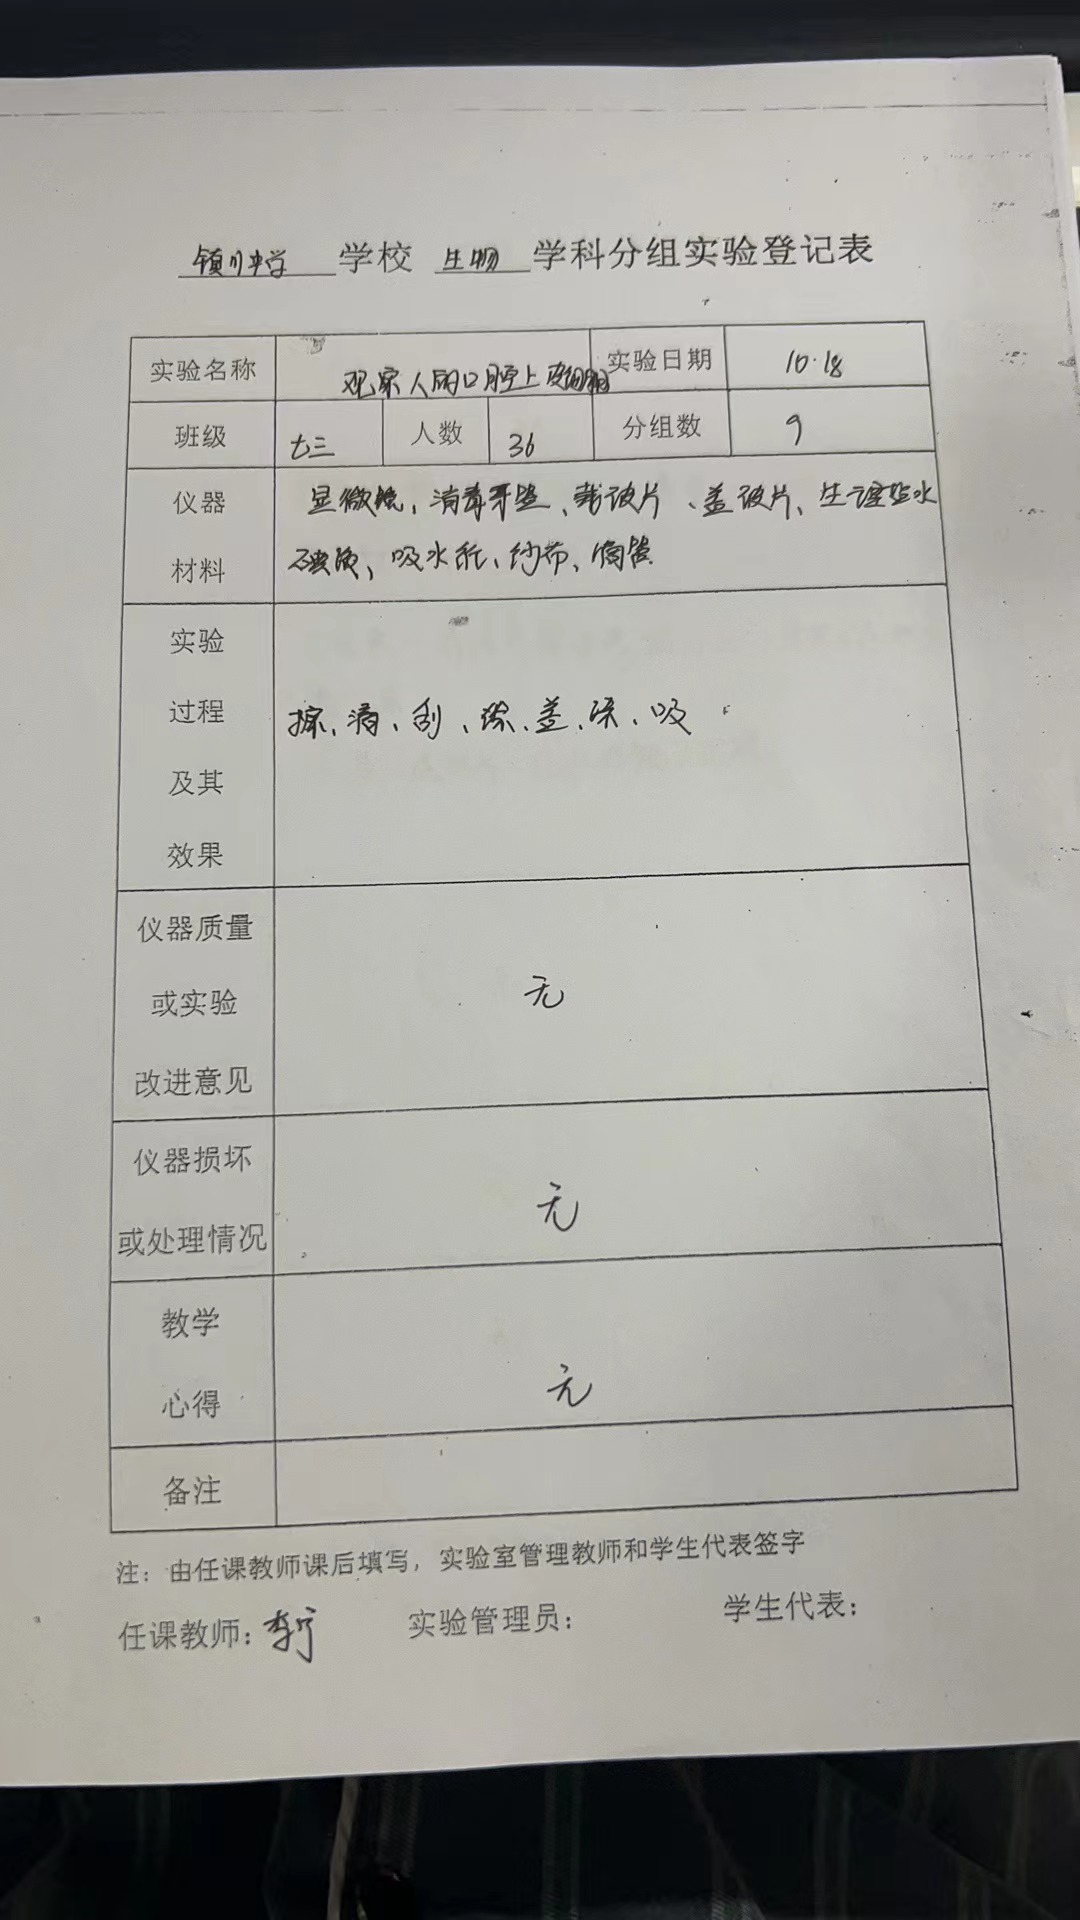 镇川中学 学校 生物 学科分组实验登记表
实验名称 观察人的口腔上皮细胞 实验日期 10.18
班级 七三 人数 36 分组数 9
仪器材料 显微镜、消毒牙签、载玻片、盖玻片、生理盐水
碘液、吸水纸、纱布、滴管
实验
过程 擦、滴、刮、涂、盖、染、吸
及其
效果
仪器质量
或实验 无
改进意见
仪器损坏
或处理情况 无
教学
心得 无
备注
注：由任课教师课后填写，实验室管理教师和学生代表签字
任课教师：李宁 实验管理员： 学生代表：